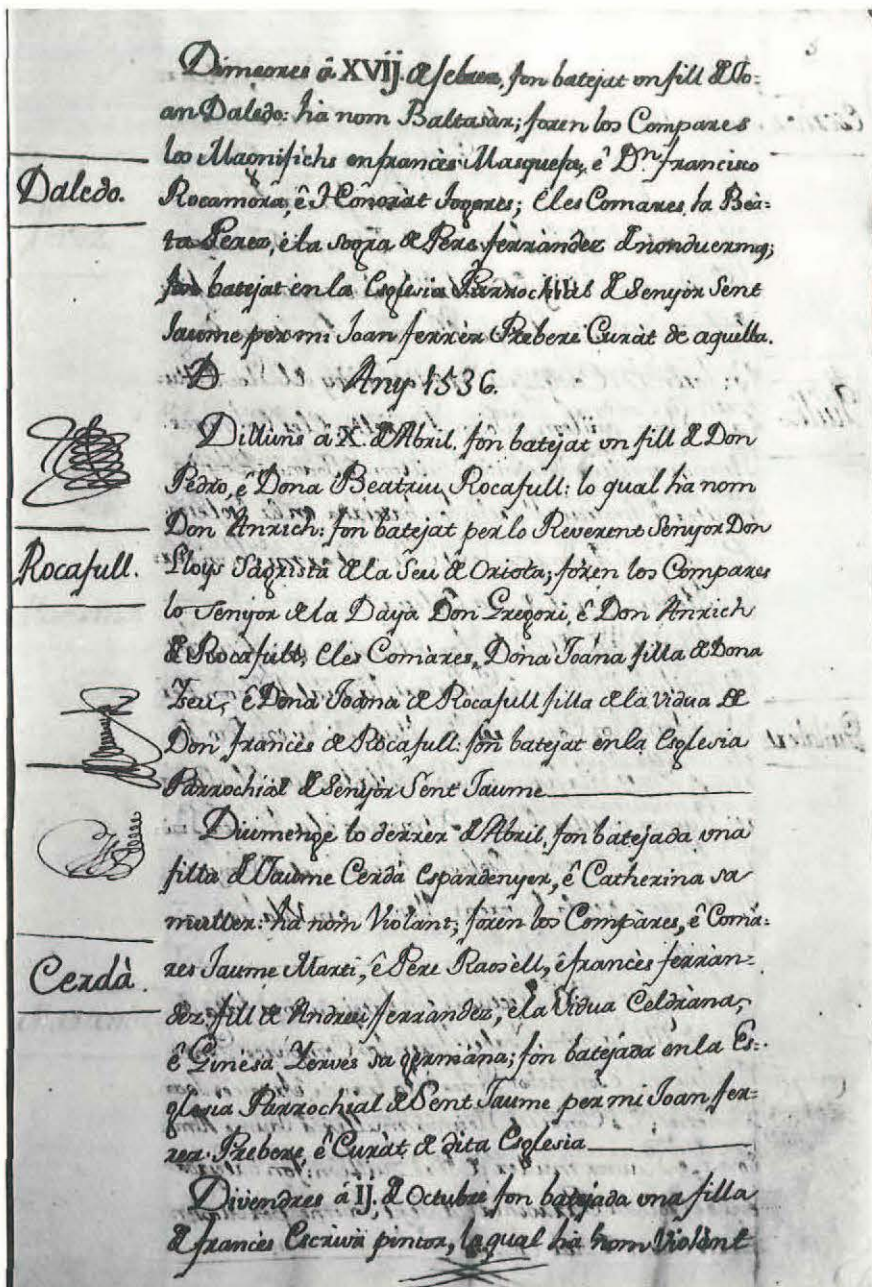 Dimecres â XVIJ. de febrer, fon batejat un fill de Jo-
an Daledo: ha nom Baltasàr; foren los Compares
los Magnifichs en francès Masquefa, ê Dn. francisco
Daledo.
Rocamòra, ê Honoràt Togores; êles Comares, la Beà-
ta Perez, ê la sogra de Pere ferràndez
fon batejat en la Esglesia Parrochial de Senyòr Sent
Jaume per mi Joan ferrèr Prebere Curàt de aquèlla.
D Any 1536.
Dilluns â X. de Abril, fon batejat un fill de Don
Pedro, ê Dona Beatriu Rocafull: lo qual ha nom
Don Anrich: fon batejat per lo Reverent Senyor Don
Rocafull.
Lloys Sagristà de la Seu de Oriola; foren los Compares
lo Senyor de la Daya Don Gregori, ê Don Anrich
de Rocafull, êles Comàres, Dona Joàna filla de Dona
ê Dona Joàna de Rocafull filla de la Vidua de
Don francès de Rocafull: fon batejat en la Esglesia
Parrochial de Senyòr Sent Jaume
Diumenge lo derrèr de Abril, fon batejada una
filla de Jaume Cerdà Espardenyer, ê Catherina sa
muller: ha nom Violant; foren los Compares, ê Comà-
Cerdà.
res Jaume Marti, ê Pere Rosèll, ê francès ferràn-
dez fill de Andreu ferràndez, ê la Vidua Celdràna,
ê Ginesa sa germàna; fon batejada en la Es-
glesia Parrochial de Sent Jaume per mi Joan fer-
rer Prebere, ê Curàt de dita Esglesia
Divendres á IJ. de Octubre fon batejada una filla
de francès Escrivà pintor, la qual ha nom Violànt